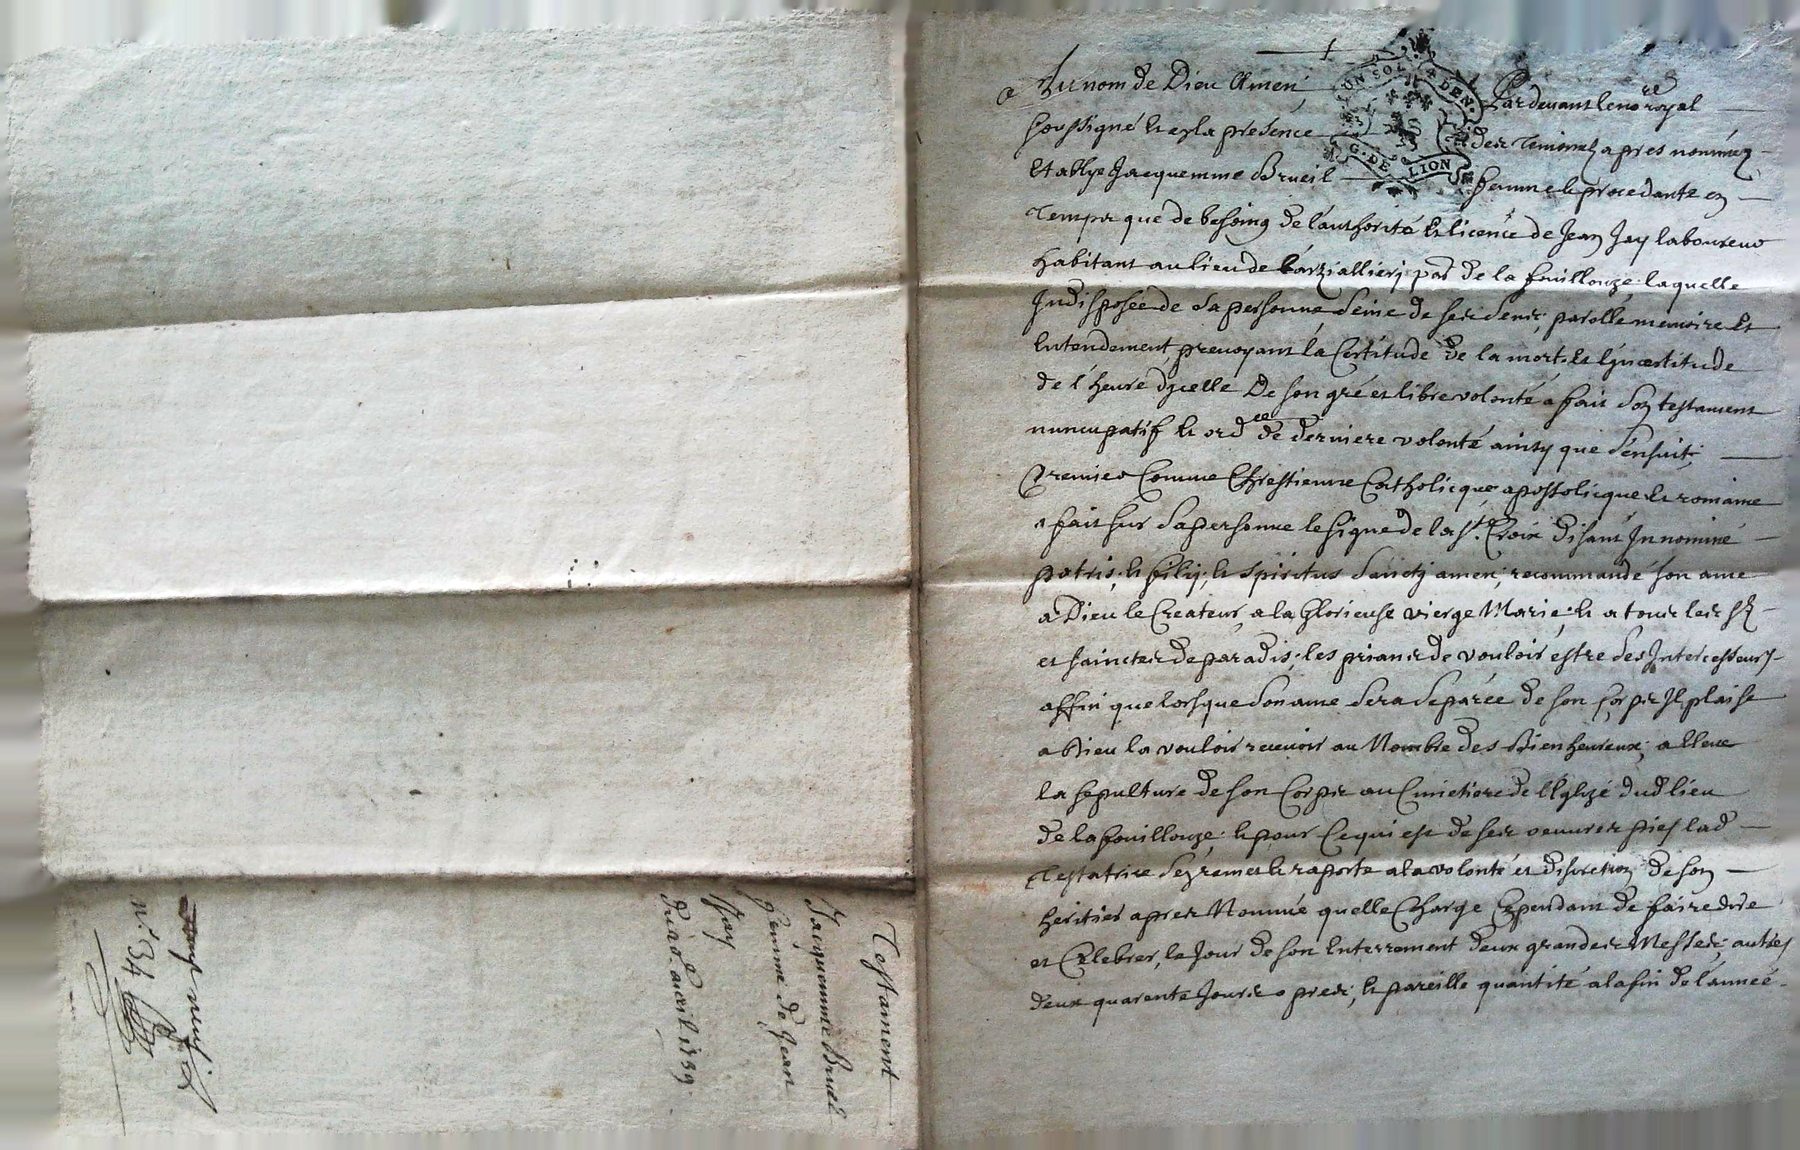 Au nom de Dieu Amen Pardevant le no.re royal
soussigné et en la presence des temoins apres nommez
Establye Jacquemme Brueil femme et procedante en
temps que de besoing de l'authorité et licence de Jean Jay laboureur
habitant au lieu de parr de la fouillouze laquelle
Indisposée de sa personne seine de ses sens, parolle memoire et
entendement prevoyant la Certitude de la mort et l'incertitude
de l'heure d'ycelle De son gré et libre volonté a fait son testament
nuncupatif et ord.ce de derniere volonté ainsy que s'ensuit,
Premier Comme Chrestienne Catholicque apostolicque et romaine
a fait sur sa personne le signe de la S.te Croix disant In nomine
patris, et filij, et spiritus sancti amen, recommandé son ame
a Dieu le Createur, a la Glorieuse vierge Marie, et a tous les
et sainctes de paradis, les priant de vouloir estre des Intercesseurs
affin que lorsque son ame sera separée de son Corps Il plaise
a Dieu la vouloir recevoir au Nombre des Bienheureux,
la sepulture de son Corps au Cimetiere de l'Eglize dud lieu
de la fouillouze, et pour Ce qui est de ses oeuvres pies lad
testatrice s'en remet et raporte a la volonté et discretion de son
heritier apres Nommé quelle Charge Cependant de faire dire
et Celebrer, le Jour de son Enterrement deux grandes Messes, autres
deux quarente Jours apres, et pareille quantité a la fin de l'année
UN SOL 4 DEN.
G. DE LION
Testament
Jacquemme Bruel
femme de Jean
Jay
du avril 1759.
neuf
n.o 34